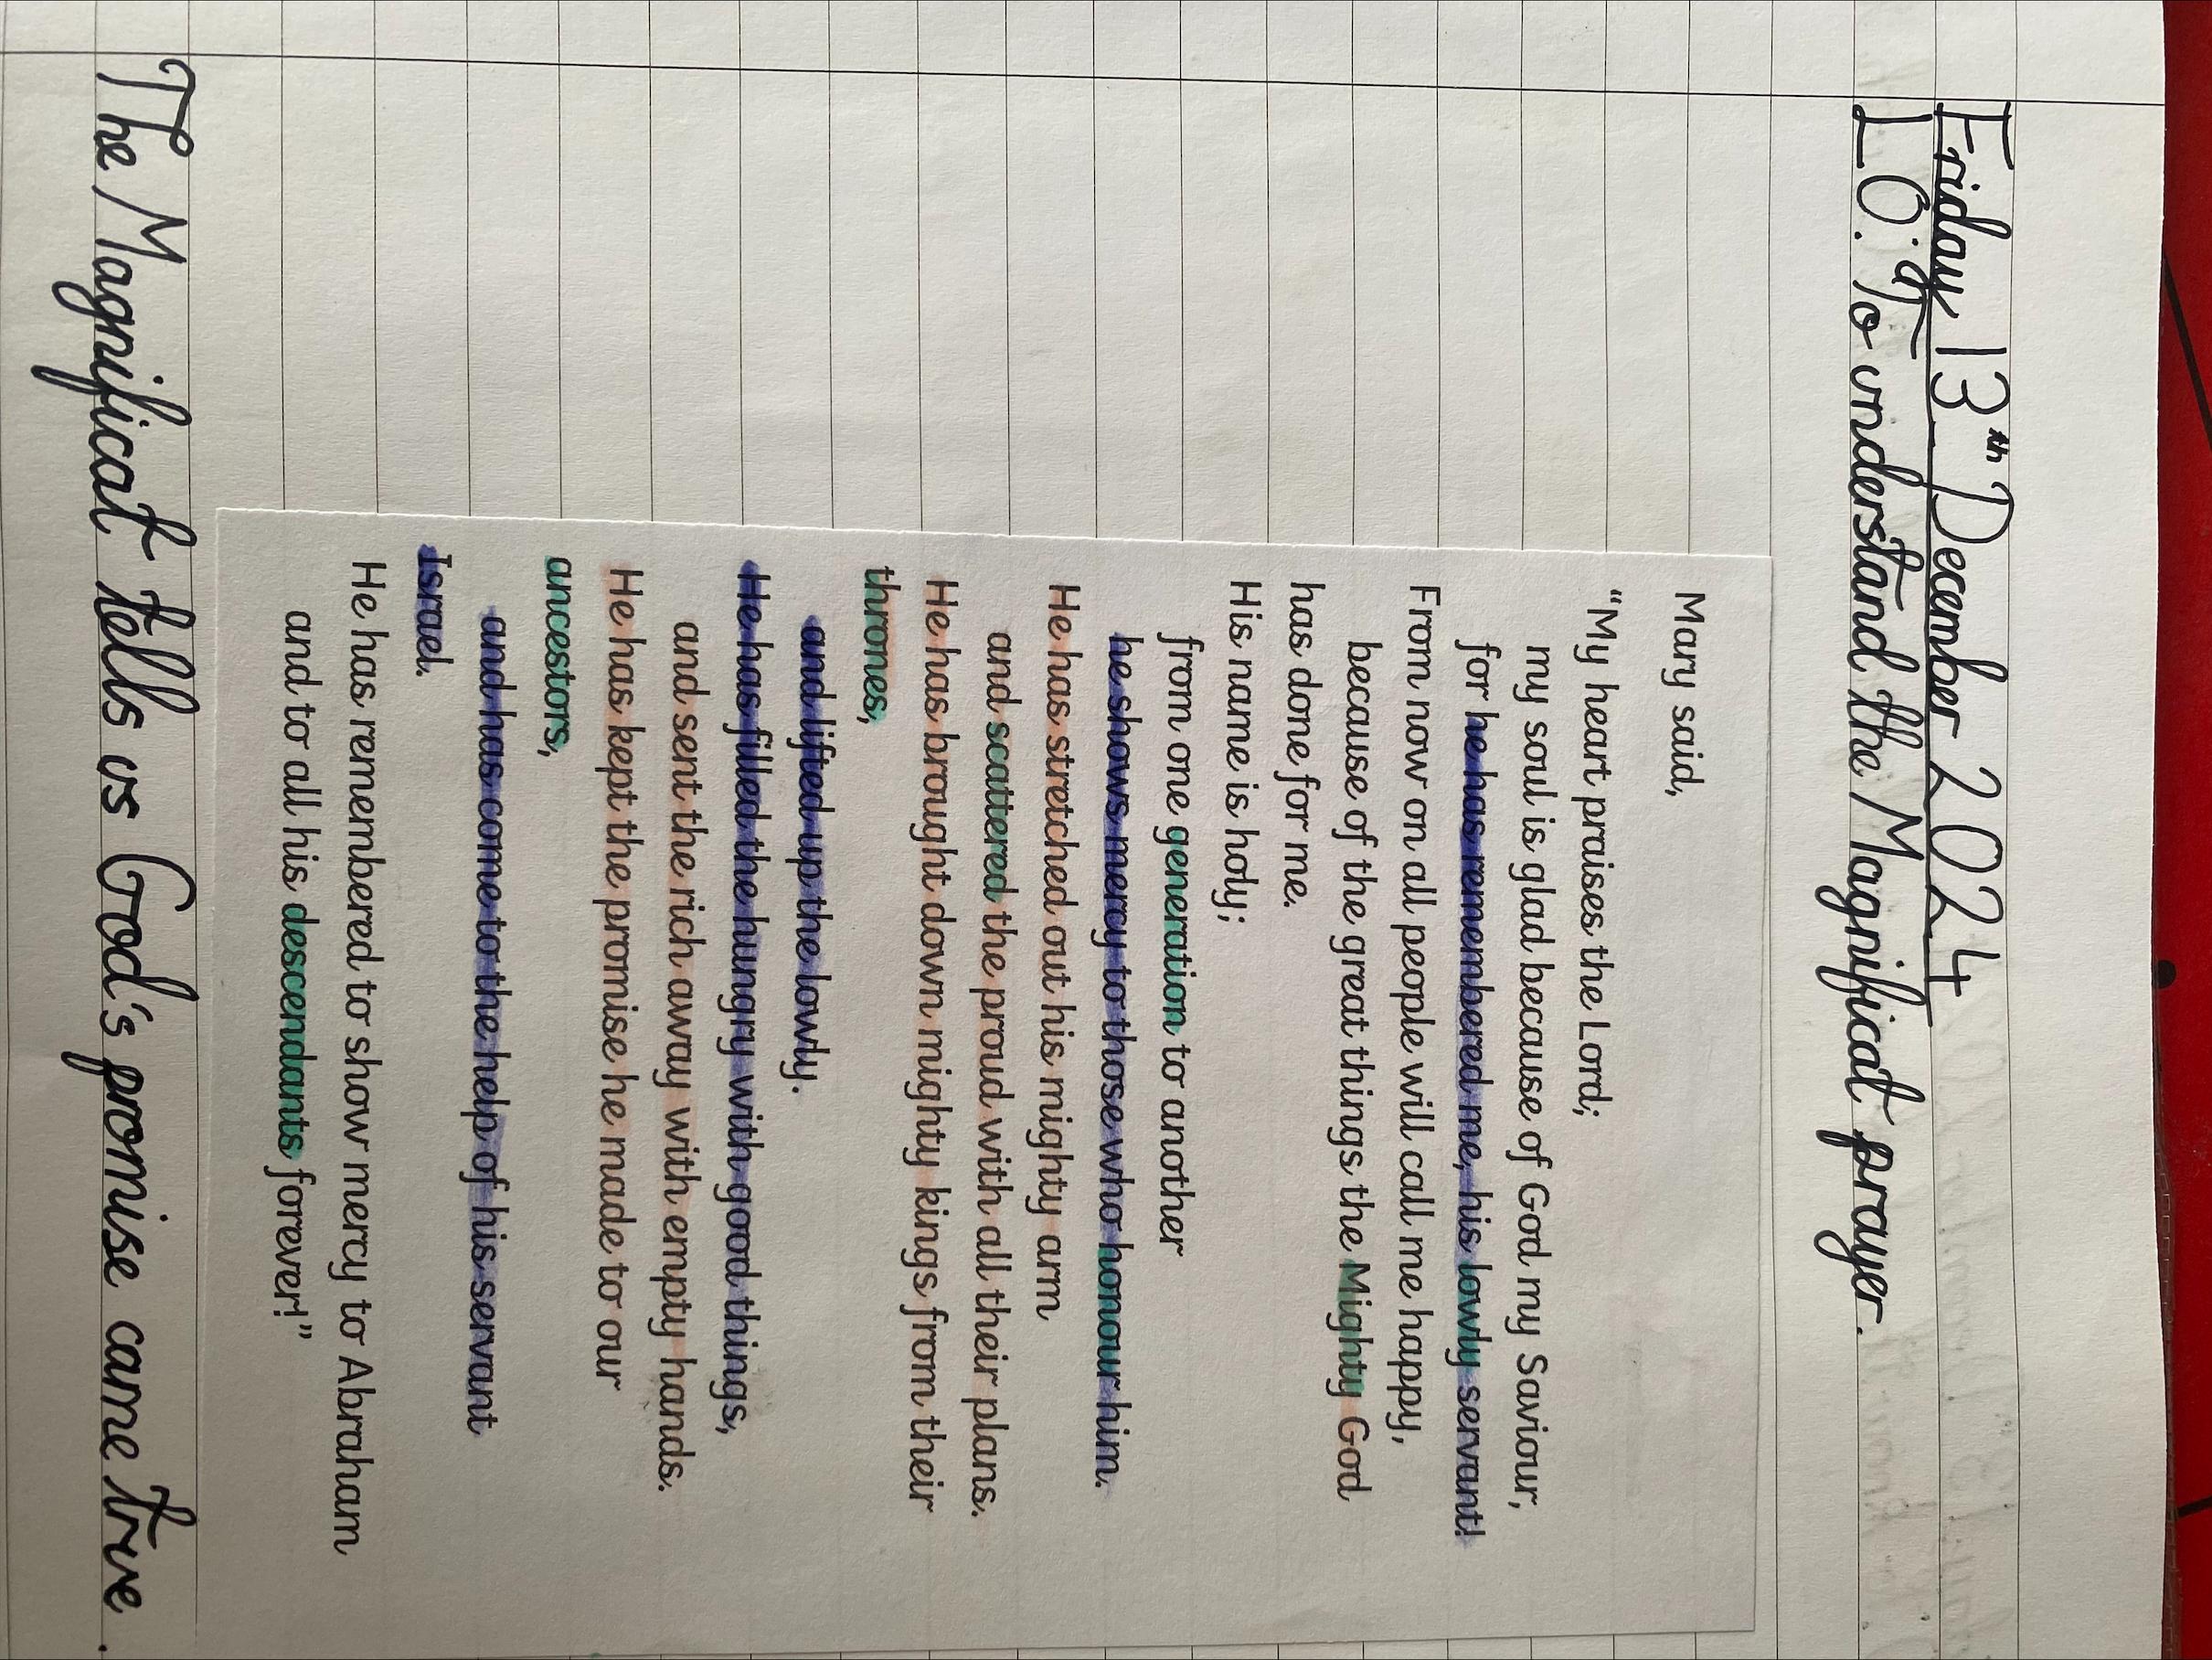 Friday 13th December 2024
L.O: To understand the Magnificat prayer.
Mary said,
“My heart praises the Lord;
my soul is glad because of God my Saviour,
for he has remembered me, his lowly servant!
From now on all people will call me happy,
because of the great things the Mighty God
has done for me.
His name is holy;
from one generation to another
he shows mercy to those who honour him.
He has stretched out his mighty arm
and scattered the proud with all their plans.
He has brought down mighty kings from their
thrones,
and lifted up the lowly.
He has filled the hungry with good things,
and sent the rich away with empty hands.
He has kept the promise he made to our
ancestors,
and has come to the help of his servant
Israel.
He has remembered to show mercy to Abraham
and to all his descendants forever!”
The Magnificat tells us God's promise came true.